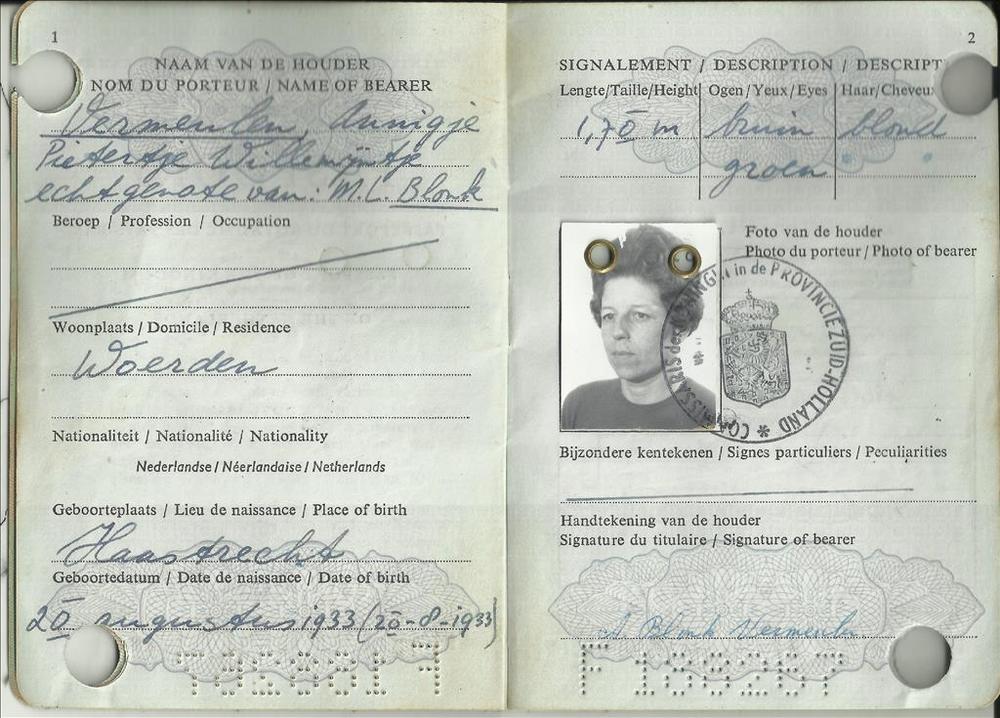 1
NAAM VAN DE HOUDER
NOM DU PORTEUR / NAME OF BEARER
Vermeulen, Annigje
Pietertje Willemijntje
echtgenote van: M.L. Blonk
Beroep / Profession / Occupation
Woonplaats / Domicile / Residence
Woerden
Nationaliteit / Nationalité / Nationality
Nederlandse / Néerlandaise / Netherlands
Geboorteplaats / Lieu de naissance / Place of birth
Haastrecht
Geboortedatum / Date de naissance / Date of birth
20 augustus 1933 (20-8-1933)
2
SIGNALEMENT / DESCRIPTION / DESCRIPT
Lengte/Taille/Height Ogen/Yeux/Eyes Haar/Cheveux
1,70 m bruin blond
groen
Foto van de houder
Photo du porteur / Photo of bearer
in de PROVINCIE ZUID-HOLLAND
Bijzondere kentekenen / Signes particuliers / Peculiarities
Handtekening van de houder
Signature du titulaire / Signature of bearer
Blonk Vermeulen
F 188267